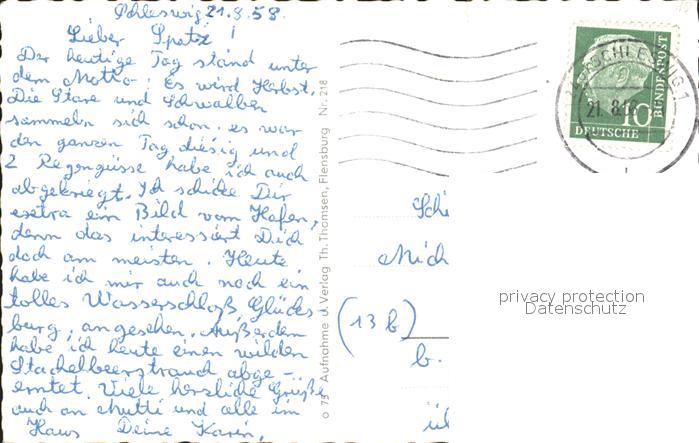 Schleswig 21.8.58.
Lieber Spatz!
Der heutige Tag stand unter
dem Motto: Es wird Herbst.
Die Stare und Schwalben
sammeln sich schon. es war
den ganzen Tag diesig und
2 Regengüsse habe ich auch
abgekriegt. Ich schicke Dir
extra ein Bild vom Hafen,
denn das interessiert Dich
doch am meisten. Heute
habe ich mir auch noch ein
tolles Wasserschloß, Glücks-
burg, angesehen. Außerdem
habe ich heute einen wilden
Stachelbeerstrauch abge-
erntet. Viele herzliche Grüße
auch an Mutti und alle im
Haus Deine Karin.
o 75 Aufnahme u. Verlag Th. Thomsen, Flensburg Nr. 218
SCHLESWIG
21. 8.
10
DEUTSCHE
BUNDESPOST
(13 b)
b.
privacy protection
Datenschutz